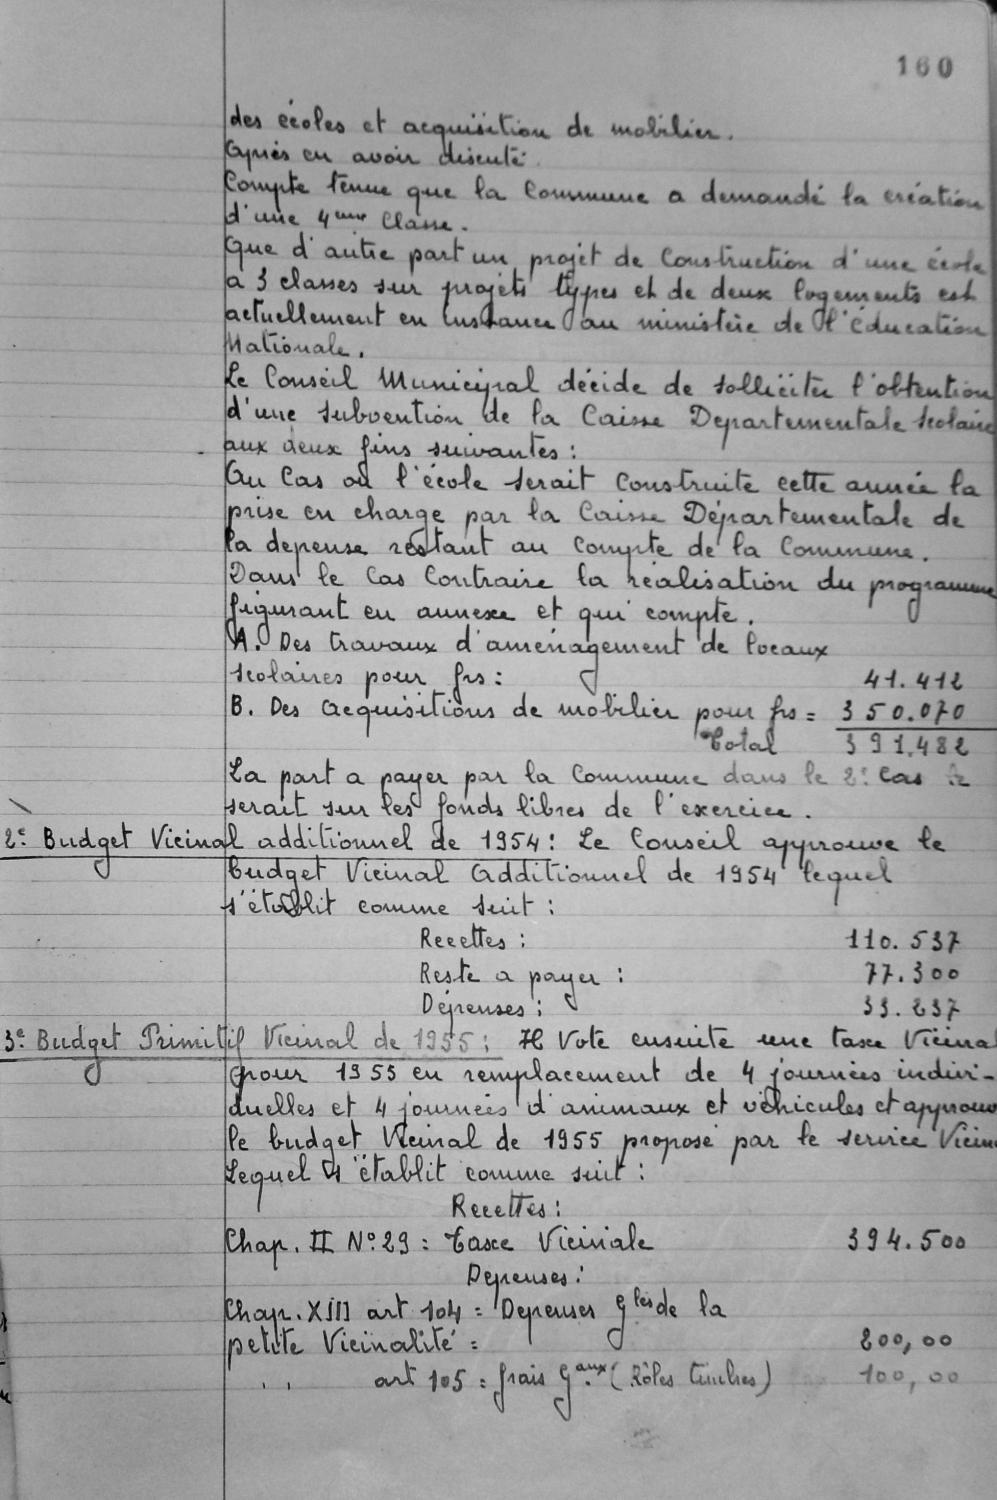 160
des écoles et acquisition de mobilier.
Après en avoir discuté.
Compte tenue que la Commune a demandé la création
d'une 4eme Classe.
Que d'autre part un projet de Construction d'une école
a 3 classes sur projets types et de deux logements est
actuellement en instance au ministère de l'Éducation
Nationale.
Le Conseil Municipal décide de solliciter l'obtention
d'une subvention de la Caisse Departementale Scolaire
aux deux fins suivantes :
Au Cas où l'école serait Construite cette année la
prise en charge par la Caisse Départementale de
la depense restant au Compte de la Commune.
Dans le Cas Contraire la réalisation du programme
figurant en annexe et qui compte.
A. Des travaux d'aménagement de locaux
scolaires pour frs : 41.412
B. Des acquisitions de mobilier pour frs = 350.070
Total 391.482
La part a payer par la Commune dans le 2e Cas le
serait sur les fonds libres de l'exercice.
2e Budget Vicinal additionnel de 1954 : Le Conseil approuve le
budget Vicinal Additionnel de 1954 lequel
s'établit comme suit :
Recettes : 110.537
Reste a payer : 77.300
Dépenses : 33.237
3e Budget Primitif Vicinal de 1955 : Il Vote ensuite une taxe Vicina
pour 1955 en remplacement de 4 journées indivi-
duelles et 4 journées d'animaux et véhicules et approuv
le budget Vicinal de 1955 proposé par le service Vicin
Lequel s'établit comme suit :
Recettes :
Chap. II No. 29 : Taxe Vicinale 394.500
Depenses :
Chap. XIII art 104 = Depenses Gles de la
petite Vicinalité = 200,00
" art 105 = frais Gaux (Rôles timbres) 100,00